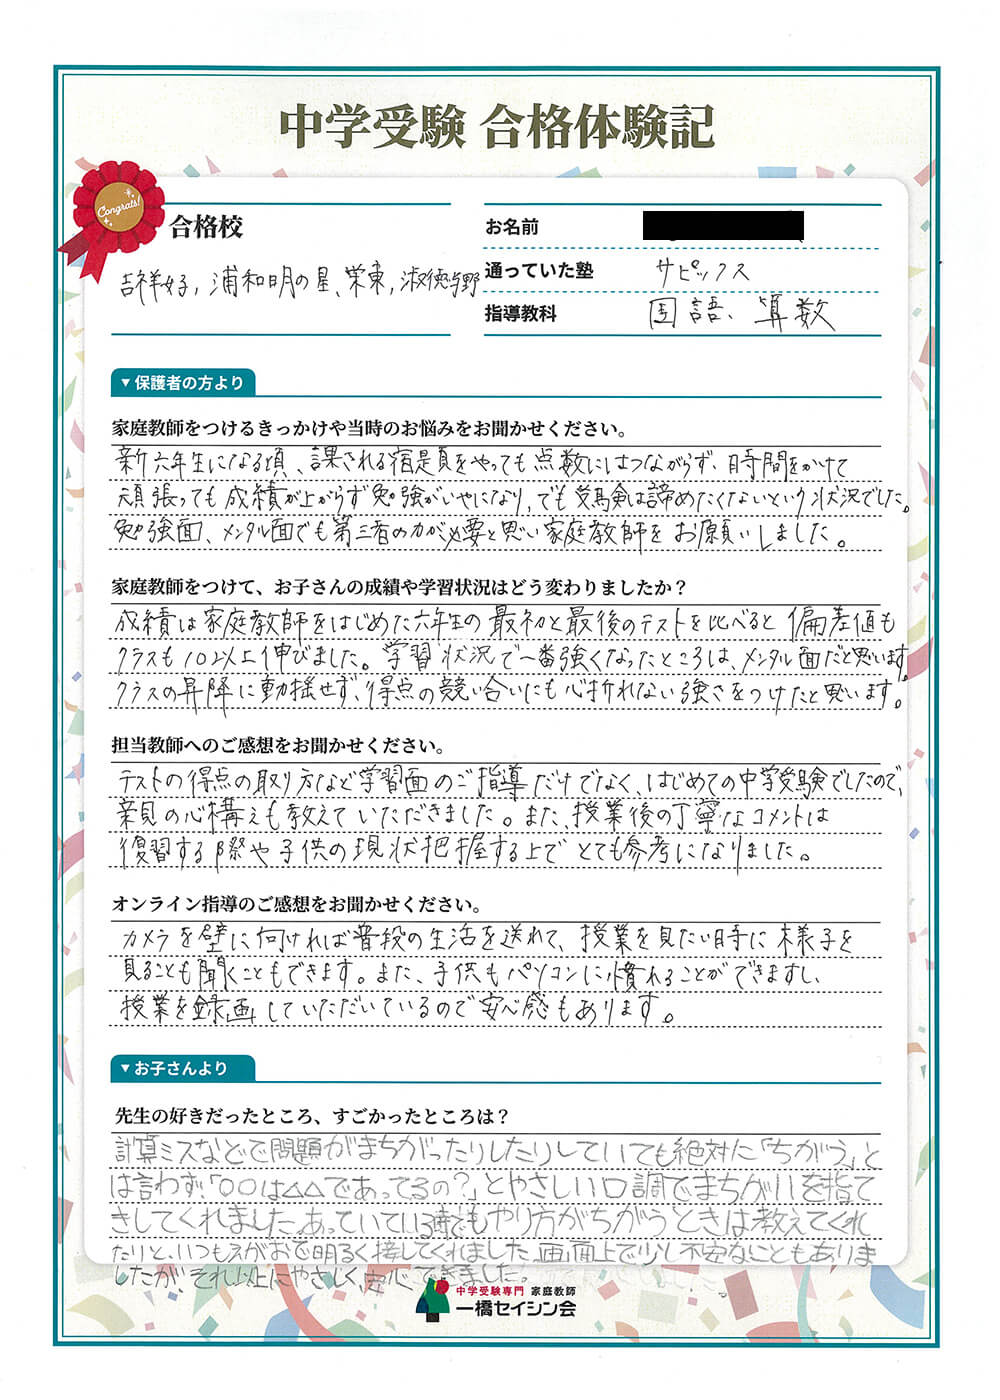 中学受験 合格体験記
Congrats!
合格校
吉祥女子, 浦和明の星、栄東, 淑徳与野
お名前
通っていた塾 サピックス
指導教科 国語、算数
▼保護者の方より
家庭教師をつけるきっかけや当時のお悩みをお聞かせください。
新六年生になる頃、課される宿題をやっても点数にはつながらず、時間をかけて
頑張っても成績が上がらず勉強がいやになり、でも受験は諦めたくないという状況でした。
勉強面、メンタル面でも第三者の力が必要と思い家庭教師をお願いしました。
家庭教師をつけて、お子さんの成績や学習状況はどう変わりましたか？
成績は家庭教師をはじめた六年生の最初と最後のテストを比べると偏差値も
クラスも10以上伸びました。学習状況で一番強くなったところは、メンタル面だと思います。
クラスの昇降に動揺せず、得点の競い合いにも心折れない強さをつけたと思います。
担当教師へのご感想をお聞かせください。
テストの得点の取り方など学習面のご指導だけでなく、はじめての中学受験でしたので、
親の心構えも教えていただきました。また、授業後の丁寧なコメントは
復習する際や子供の現状把握する上でとても参考になりました。
オンライン指導のご感想をお聞かせください。
カメラを壁に向ければ普段の生活を送れて、授業を見たい時に様子を
見ることも聞くこともできます。また、子供もパソコンに慣れることができますし、
授業を録画していただいているので安心感もあります。
▼お子さんより
先生の好きだったところ、すごかったところは？
計算ミスなどで問題がまちがったりしたりしていても絶対に「ちがう」と
は言わず、「○○は△△であってるの？」とやさしい口調でまちがいを指て
きしてくれました。あっていている時でもやり方がちがうときは教えてくれ
たりと、いつもえがおで明るく接してくれました。画面上で少し不安なこともありま
したが、それ以上にやさしく、安心できました。
中学受験専門 家庭教師
一橋セイシン会